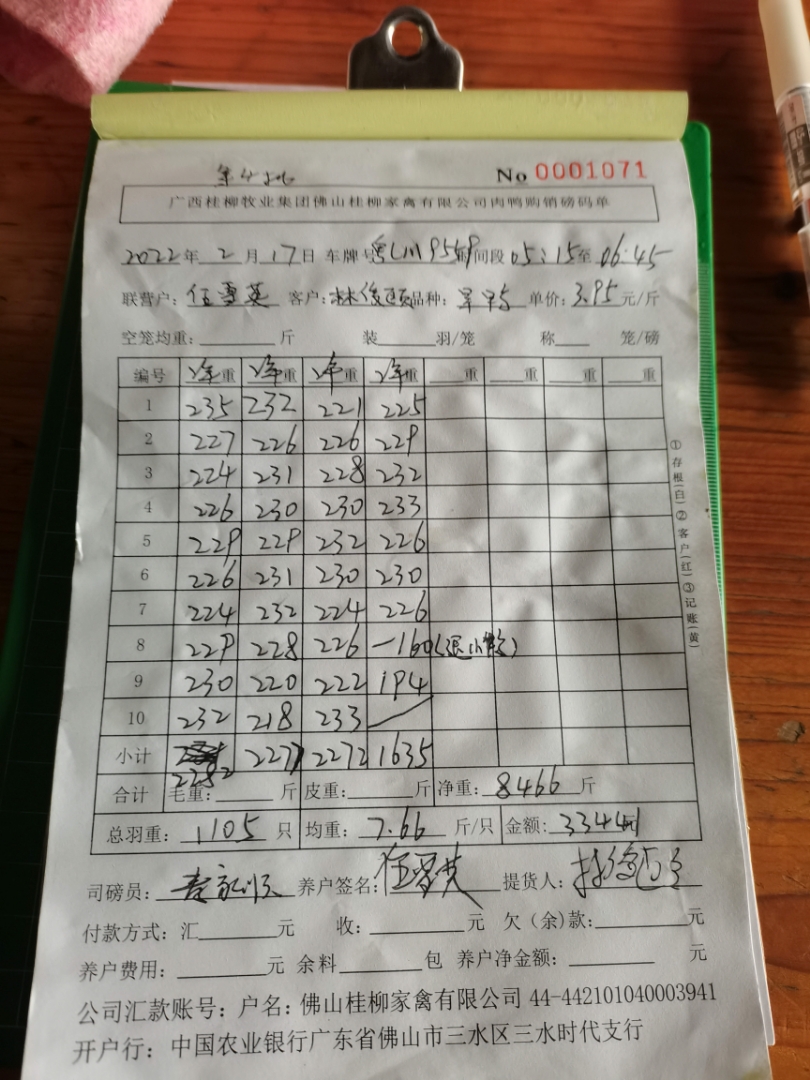 No 0001071
广西桂柳牧业集团佛山桂柳家禽有限公司肉鸭购销磅码单
2022年 2 月 17日 车牌号 9559 时间段 05:15至 06:45
联营户: 伍雪英 客户: 林俊 品种: 单价: 3.95 元/斤
空笼均重: 斤 装 羽/笼 称 笼/磅
编号 净重 净重 净重 净重 重 重 重 重
1 235 232 221 225
2 227 226 226 229
3 224 231 228 232
4 226 230 230 233
5 229 229 232 226
6 226 231 230 230
7 224 232 224 226
8 229 228 226 -160(退小鸭)
9 230 220 222 194
10 232 218 233
小计 2282 2277 2272 1635
合计 毛重: 斤 皮重: 斤 净重: 8466 斤
总羽重: 1105 只 均重: 7.66 斤/只 金额: 33441
司磅员: 养户签名: 伍雪英 提货人:
付款方式: 汇 元 收: 元 欠(余)款: 元
养户费用: 元 余料 包 养户净金额: 元
公司汇款账号: 户名: 佛山桂柳家禽有限公司 44-442101040003941
开户行: 中国农业银行广东省佛山市三水区三水时代支行
①存根(白)②客户(红)③记账(黄)